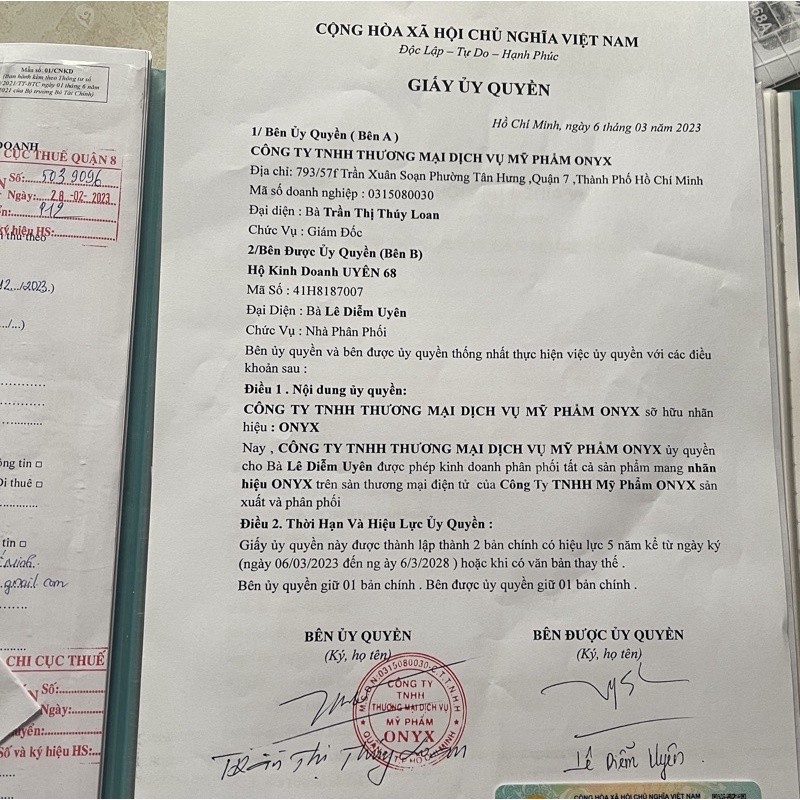 CỘNG HÒA XÃ HỘI CHỦ NGHĨA VIỆT NAM
Độc Lập – Tự Do – Hạnh Phúc
GIẤY ỦY QUYỀN
Hồ Chí Minh, ngày 6 tháng 03 năm 2023
1/ Bên Ủy Quyền ( Bên A )
CÔNG TY TNHH THƯƠNG MẠI DỊCH VỤ MỸ PHẨM ONYX
Địa chỉ: 793/57f Trần Xuân Soạn Phường Tân Hưng ,Quận 7 ,Thành Phố Hồ Chí Minh
Mã số doanh nghiệp : 0315080030
Đại diện : Bà Trần Thị Thúy Loan
Chức Vụ : Giám Đốc
2/Bên Được Ủy Quyền (Bên B)
Hộ Kinh Doanh UYÊN 68
Mã Số : 41H8187007
Đại Diện : Bà Lê Diễm Uyên
Chức Vụ : Nhà Phân Phối
Bên ủy quyền và bên được ủy quyền thống nhất thực hiện việc ủy quyền với các điều
khoản sau :
Điều 1 . Nội dung ủy quyền:
CÔNG TY TNHH THƯƠNG MẠI DỊCH VỤ MỸ PHẨM ONYX sỡ hữu nhãn
hiệu : ONYX
Nay , CÔNG TY TNHH THƯƠNG MẠI DỊCH VỤ MỸ PHẨM ONYX ủy quyền
cho Bà Lê Diễm Uyên được phép kinh doanh phân phối tất cả sản phẩm mang nhãn
hiệu ONYX trên sàn thương mại điện tử của Công Ty TNHH Mỹ Phẩm ONYX sản
xuất và phân phối
Điều 2. Thời Hạn Và Hiệu Lực Ủy Quyền :
Giấy ủy quyền này được thành lập thành 2 bản chính có hiệu lực 5 năm kể từ ngày ký
(ngày 06/03/2023 đến ng ày 6/3/2028 ) hoặc khi có văn bản thay thế .
Bên ủy quyền giữ 01 bản chính . Bên được ủy quyền giữ 01 bản chính .
BÊN ỦY QUYỀN
(Ký, họ tên)
BÊN ĐƯỢC ỦY QUYỀN
(Ký, họ tên)
M.S.D.N:0315080030-C.T.T.N.H.H
CÔNG TY
TNHH
THƯƠNG MẠI DỊCH VỤ
MỸ PHẨM
ONYX
QUẬN 7 - T.P HỒ CHÍ MINH
Trần Thị Thúy Loan
Lê Diễm Uyên
CỘNG HÒA XÃ HỘI CHỦ NGHĨA VIỆT NAM
Mẫu số: 01/CNKD
(Ban hành kèm theo Thông tư số
/2021/TT-BTC ngày 01 tháng 6 năm
2021 của Bộ trưởng Bộ Tài Chính)
DOANH
CỤC THUẾ QUẬN 8
Số: 5039096
Ngày: 28-02-2023
ký hiệu HS:
thu theo
12.../2023.)
.../...)
ông tin
Đi thuê
tin
.gmail com
CHI CỤC THUẾ
Số:
Ngày:
Số và ký hiệu HS:
68A